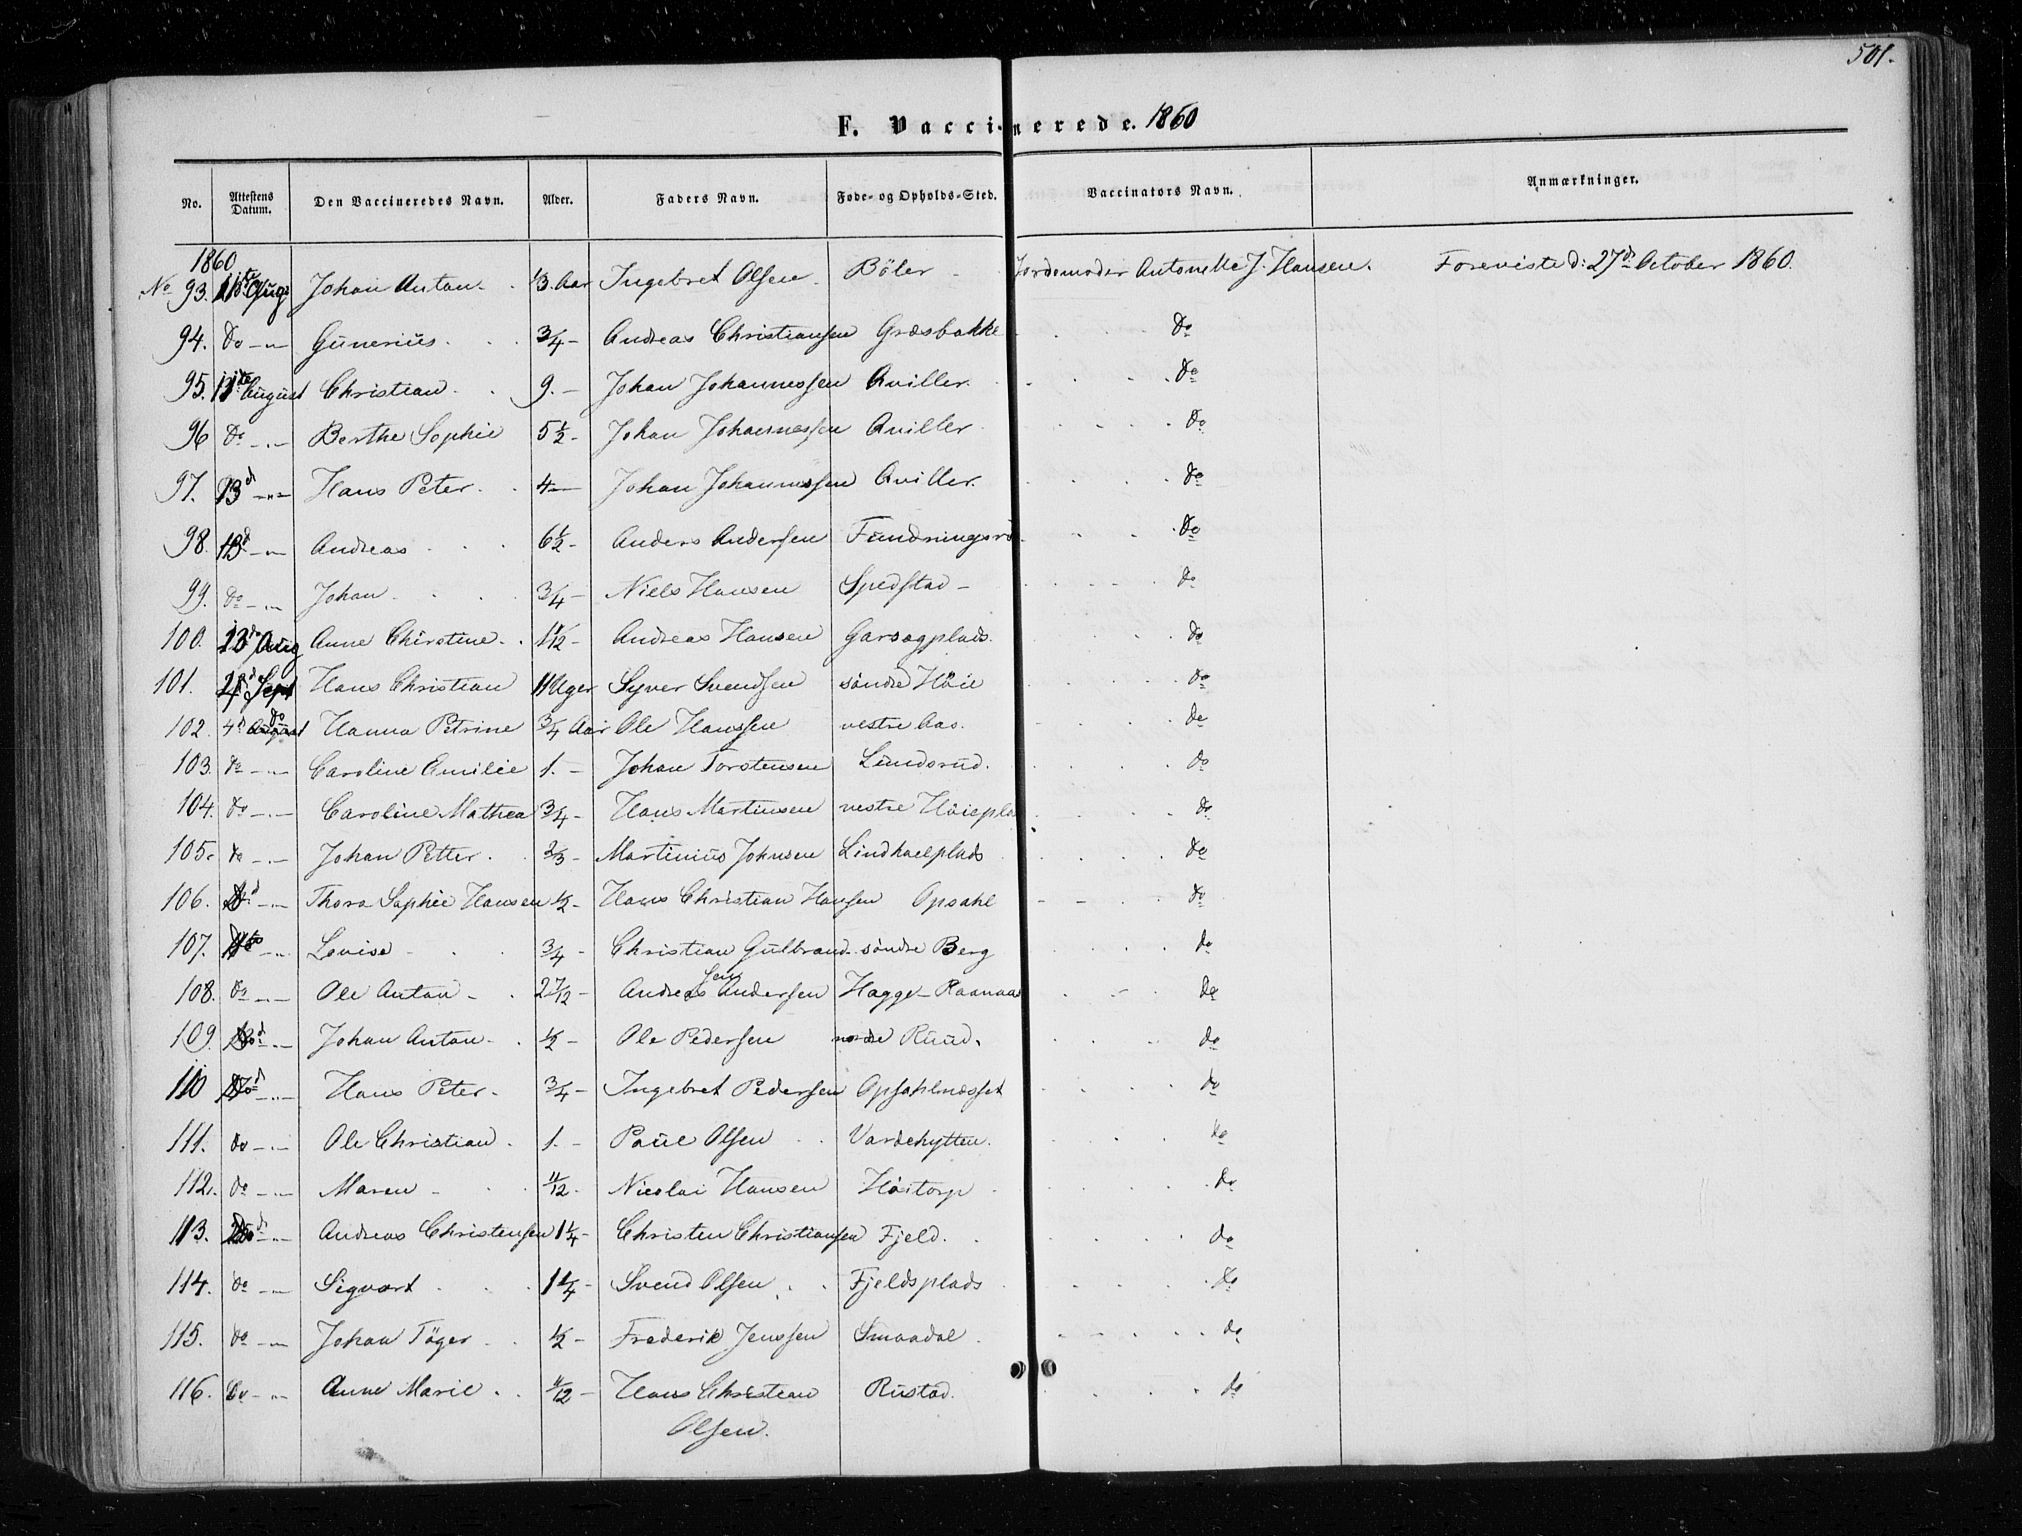 501.
F. Vaccinerede. 1860
No. Attestens Datum. Den Vaccineredes Navn. Alder. Faders Navn. Føde- og Opholds-Sted. Vaccinators Navn. Anmærkninger.
1860
No 93. Aug Johan Anton. 1/3. Aar Ingebret Olsen. Böler Jordemoder Antonette J. Hansen. Foreviste d: 27d October 1860.
94. do Gunerius. 3/4 Andreas Christiansen Græsbakke do
95. August Christian. 9. Johan Johannessen Aviller. do
96 do Berthe Sophie 5 1/2 Johan Johannessen Aviller. do
97. 13d Hans Peter. 4 Johan Johannessen Aviller. do
98. 13d Andreas 6 1/2 Anders Andersen do
99. do Johan 3/4 Niels Hansen Spedstad do
100. 13 Aug Anne Chirstine. 11/12 Andreas Hansen Garsegplads. do
101. Sept Hans Christian 11 Uger Syver Svendsen söndre Höie do
102. 4d do Hanna Petrine 3/4 Aar Ole Hanssen vestre Aas. do
103. do Caroline Amilie 1. Johan Torstensen Lundsrud. do
104. do Caroline Mathea 3/4 Hans Martinsen vestre Höiepla do
105. do Johan Petter. 2/3 Martinius Johnsen Lindhaelplads do
106. do Thora Sophie Hansen 1/2 Hans Christian Hansen Opsahl do
107. do Lovise 3/4 Christian Gulbrand- söndre Berg do
sen
108. do Ole Anton 2 7/12 Andreas Andersen Hagge-Raanaas do
109. do Johan Anton 1/2 Ole Pedersen nordre Ruud. do
110 do Hans Peter. 3/4 Ingebret Pedersen Opsahlnæsset do
111. do Ole Christian. 1. Paul Olsen Vardehytten. do
112. do Maren 11/12 Nicolai Hansen Höitorp do
113. do Andreas Christensen 1 1/4 Christen Christiansen Fjeld. do
114. do Sigvart 1 1/4 Svend Olsen Fjeldsplads do
115. do Johan Töger 1/2 Frederik Jenssen Smaadal do
116. do Anne Marie. 11/12 Hans Christian Rustad. do
Olsen.